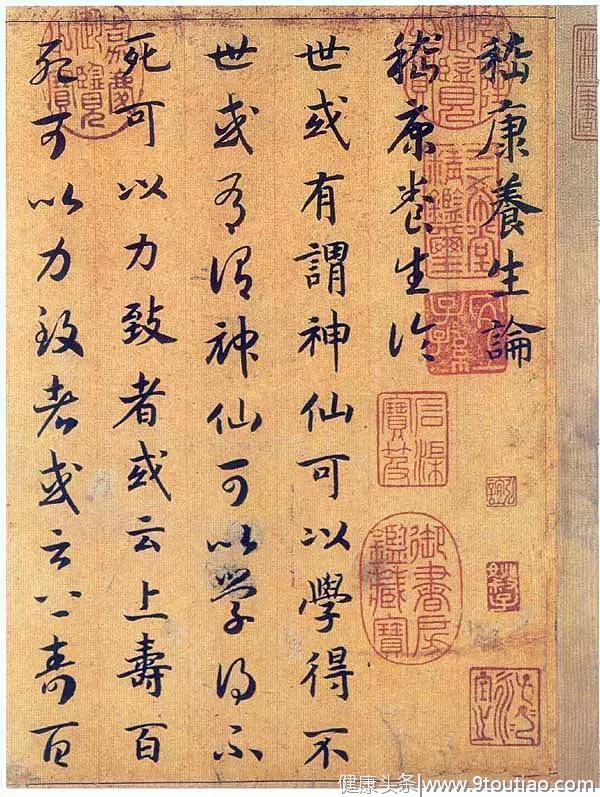 嵇康養生論
嵇康養生論
世或有謂神仙可以學得不
世或有謂神仙可以學得不
死可以力致者或云上壽百
死可以力致者或云上壽百
三希堂精鑑璽
宜子孫
石渠寶笈
御書房鑑藏寶
嘉慶御覽之寶
健康头条|www.9toutiao.com